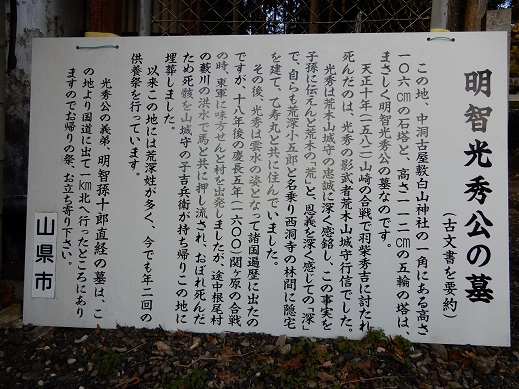 明智光秀公の墓
（古文書を要約）
この地、中洞古屋敷白山神社の一角にある高さ
一〇六cmの石塔と、高さ一一二cmの五輪の塔は、
まさしく明智光秀公の墓なのです。
天正十年（一五八二）山崎の合戦で羽柴秀吉に討たれ
死んだのは、光秀の影武者荒木山城守行信でした。
光秀は荒木山城守の忠誠に深く感銘し、この事実を
子孫に伝えんと荒木の「荒」と、恩義を深く感じての「深」
で、自らも荒深小五郎と名乗り西洞寺の林間に隠宅
を建て、乙寿丸と共に住んでいました。
その後、光秀は雲水の姿となって諸国遍歴に出たの
ですが、十八年後の慶長五年（一六〇〇）関ヶ原の合戦
の時、東軍に味方せんと村を出発しましたが、途中根尾村
の藪川の洪水で馬と共に押し流され、おぼれ死んだ
ため死骸を山城守の子吉兵衛が持ち帰りこの地に
埋葬しました。
以来この地には荒深姓が多く、今でも年二回の
供養祭を行っています。
光秀公の義弟、明智孫十郎直経の墓は、こ
の地より国道に出て1km北へ行ったところにあり
ますのでお帰りの祭、お立ち寄り下さい。
山県市